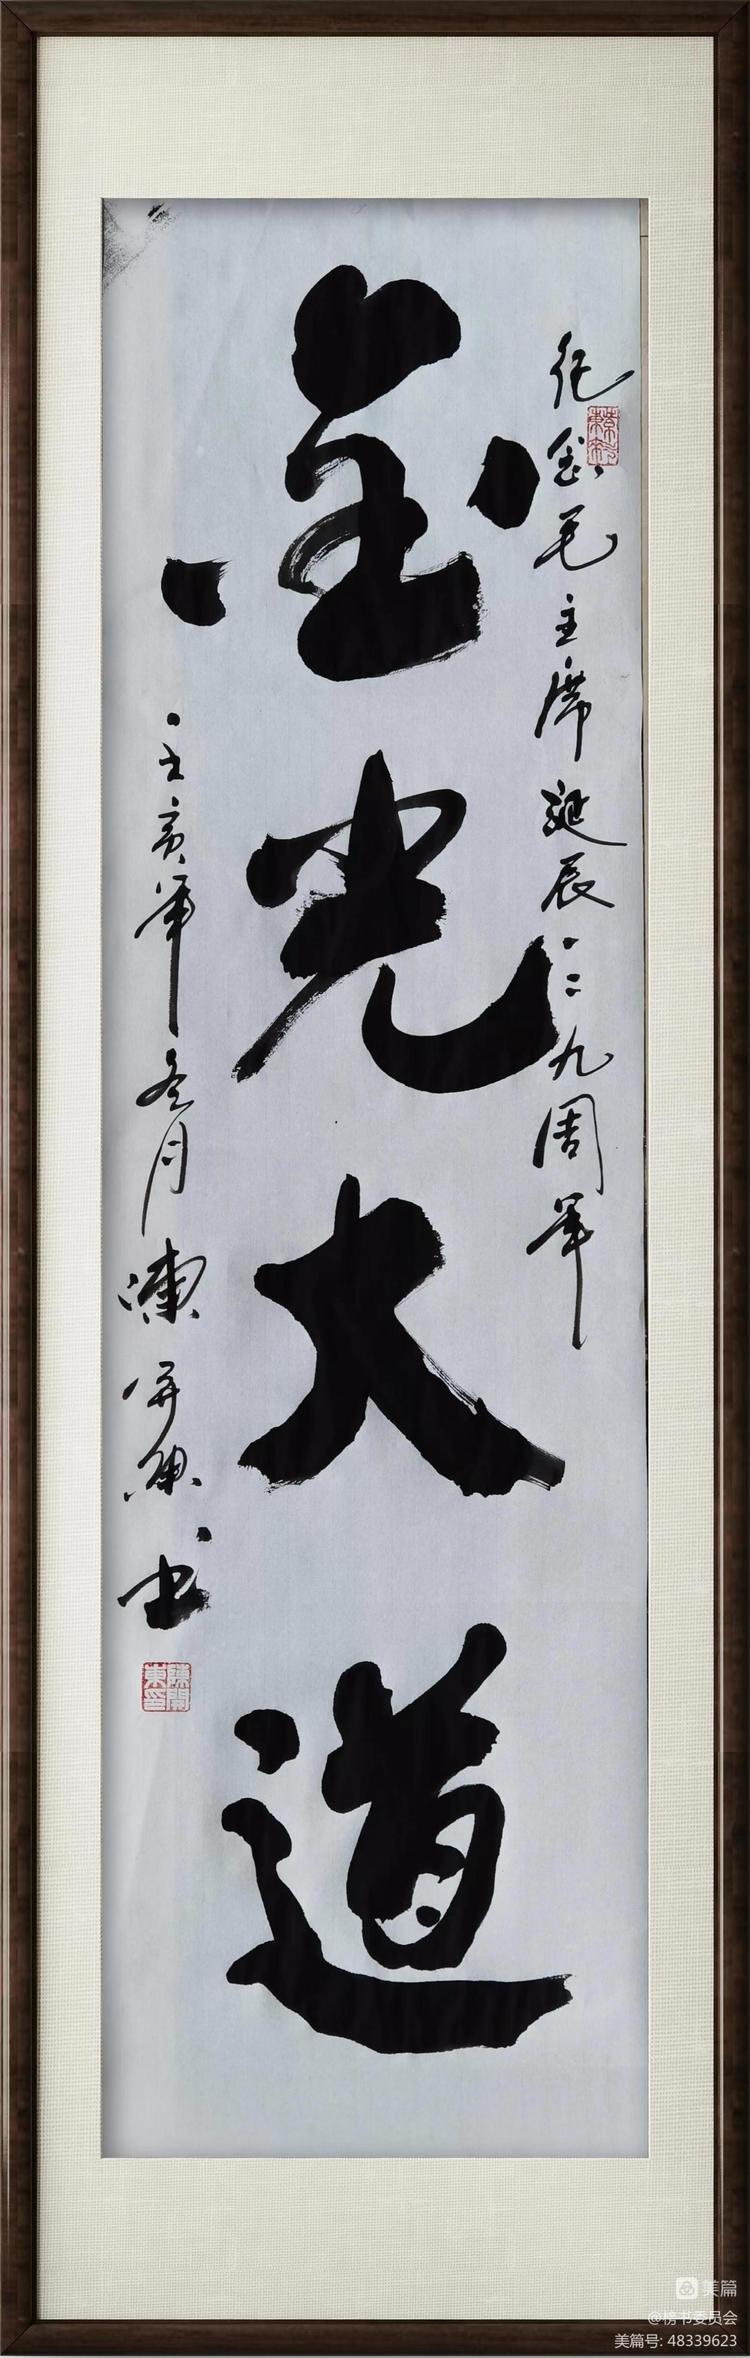 纪念毛主席诞辰一二九周年
金光大道
壬寅年冬月陳开東书
陳開東印
美篇
@榜书委员会
美篇号: 48339623